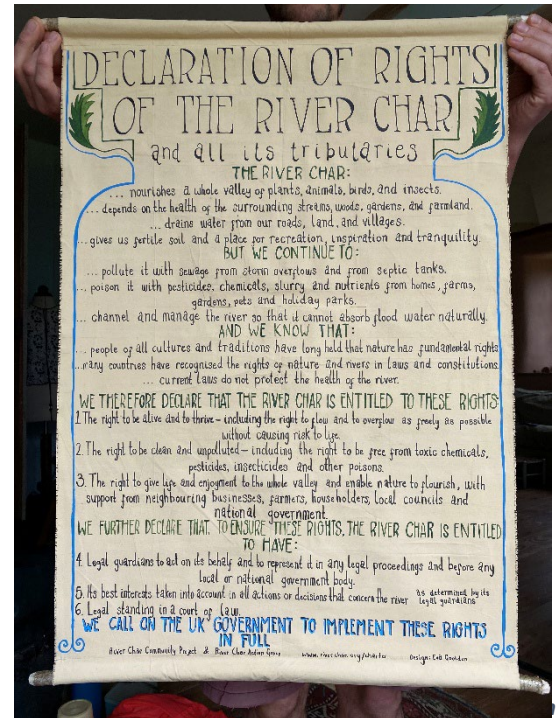 DECLARATION OF RIGHTS
OF THE RIVER CHAR
and all its tributaries
THE RIVER CHAR:
... nourishes a whole valley of plants, animals, birds, and insects.
... depends on the health of the surrounding streams, woods, gardens, and farmland.
... drains water from our roads, land, and villages.
... gives us fertile soil and a place for recreation, inspiration and tranquility.
BUT WE CONTINUE TO:
... pollute it with sewage from storm overflows and from septic tanks.
... poison it with pesticides, chemicals, slurry and nutrients from homes, farms,
gardens, pets and holiday parks.
... channel and manage the river so that it cannot absorb flood water naturally.
AND WE KNOW THAT:
... people of all cultures and traditions have long held that nature has fundamental rights
...many countries have recognised the rights of nature and rivers in laws and constitutions.
... current laws do not protect the health of the river.
WE THEREFORE DECLARE THAT THE RIVER CHAR IS ENTITLED TO THESE RIGHTS:
1. The right to be alive and to thrive – including the right to flow and to overflow as freely as possible
without causing risk to life.
2. The right to be clean and unpolluted – including the right to be free from toxic chemicals,
pesticides, insecticides and other poisons.
3. The right to give life and enjoyment to the whole valley and enable nature to flourish, with
support from neighbouring businesses, farmers, householders, local councils and
national government.
WE FURTHER DECLARE THAT, TO ENSURE THESE RIGHTS, THE RIVER CHAR IS ENTITLED
TO HAVE:
4. Legal guardians to act on its behalf and to represent it in any legal proceedings and before any
local or national government body.
5. Its best interests taken into account in all actions or decisions that concern the river as determined by its
legal guardians
6. Legal standing in a court of law.
WE CALL ON THE UK GOVERNMENT TO IMPLEMENT THESE RIGHTS
IN FULL
River Char Community Project & River Char Action Group www.riverchar.org/charter Design: